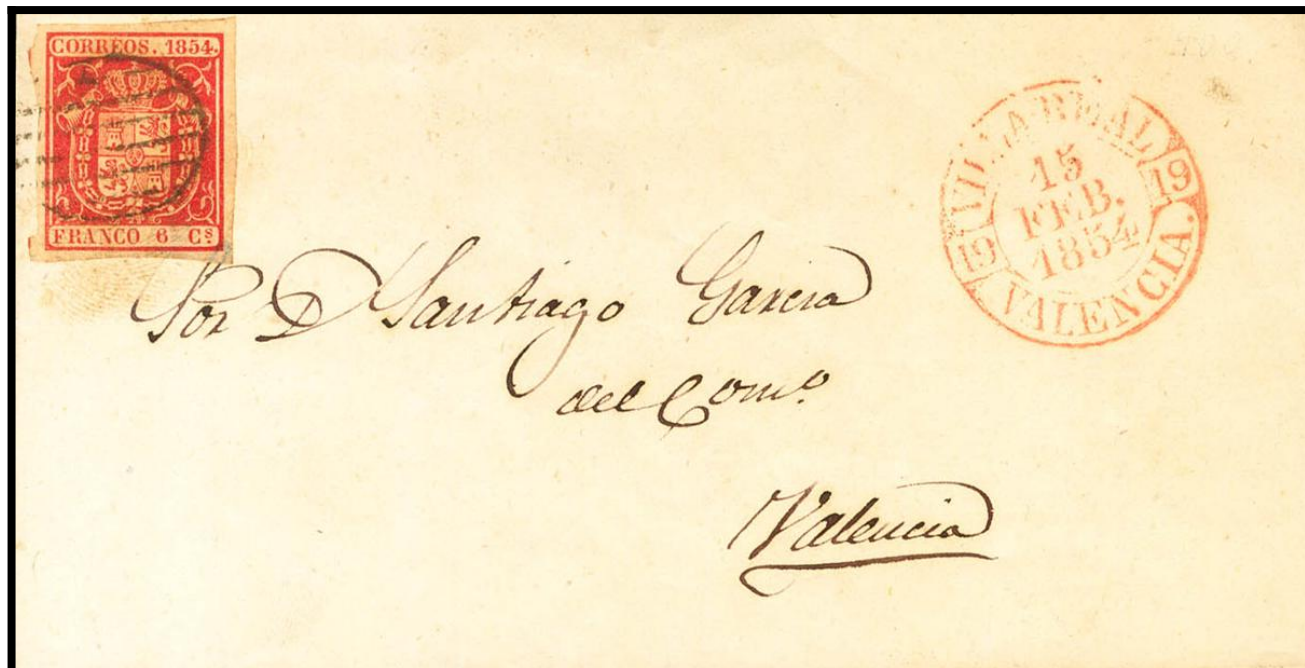 CORREOS. 1854.
FRANCO 6 Cˢ
VILLAREAL
19
15
FEB.
1854
19
VALENCIA.
Sor D Santiago Garcia
del Comº
Valencia